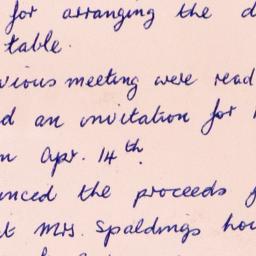 for arranging the d
table.
vious meeting were read
d an invitation for
n Apr. 14th.
nced the proceeds f
t Mrs. Spaldings hou